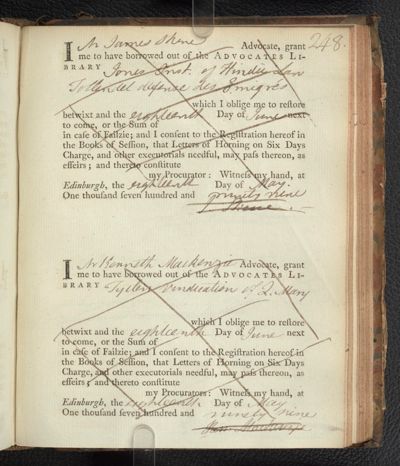 248.
I Mr James Skene Advocate, grant
me to have borrowed out of the ADVOCATES LI-
BRARY Jones Inst. of Hindu Law
Tollendal defense des Emigrés
which I oblige me to restore
betwixt and the eighteenth Day of June next
to come, or the Sum of
in case of Failzie; and I consent to the Registration hereof in
the Books of Session, that Letters of Horning on Six Days
Charge, and other executorials needful, may pass thereon, as
effeirs; and thereto constitute
my Procurator: Witness my hand, at
Edinburgh, the eighteenth Day of May.
One thousand seven hundred and ninety nine
J Skene.
I Mr Kenneth Mackenzie Advocate, grant
me to have borrowed out of the ADVOCATES LI-
BRARY Tytlers Vindication of Q. Mary
which I oblige me to restore
betwixt and the eighteenth Day of June next
to come, or the Sum of
in case of Failzie; and I consent to the Registration hereof in
the Books of Session, that Letters of Horning on Six Days
Charge, and other executorials needful, may pass thereon, as
effeirs; and thereto constitute
my Procurators: Witness my hand, at
Edinburgh, the eighteenth Day of May
One thousand seven hundred and ninety nine